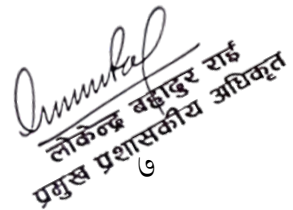 लोकेन्द्र बहादुर राई
प्रमुख प्रशासकीय अधिकृत
७